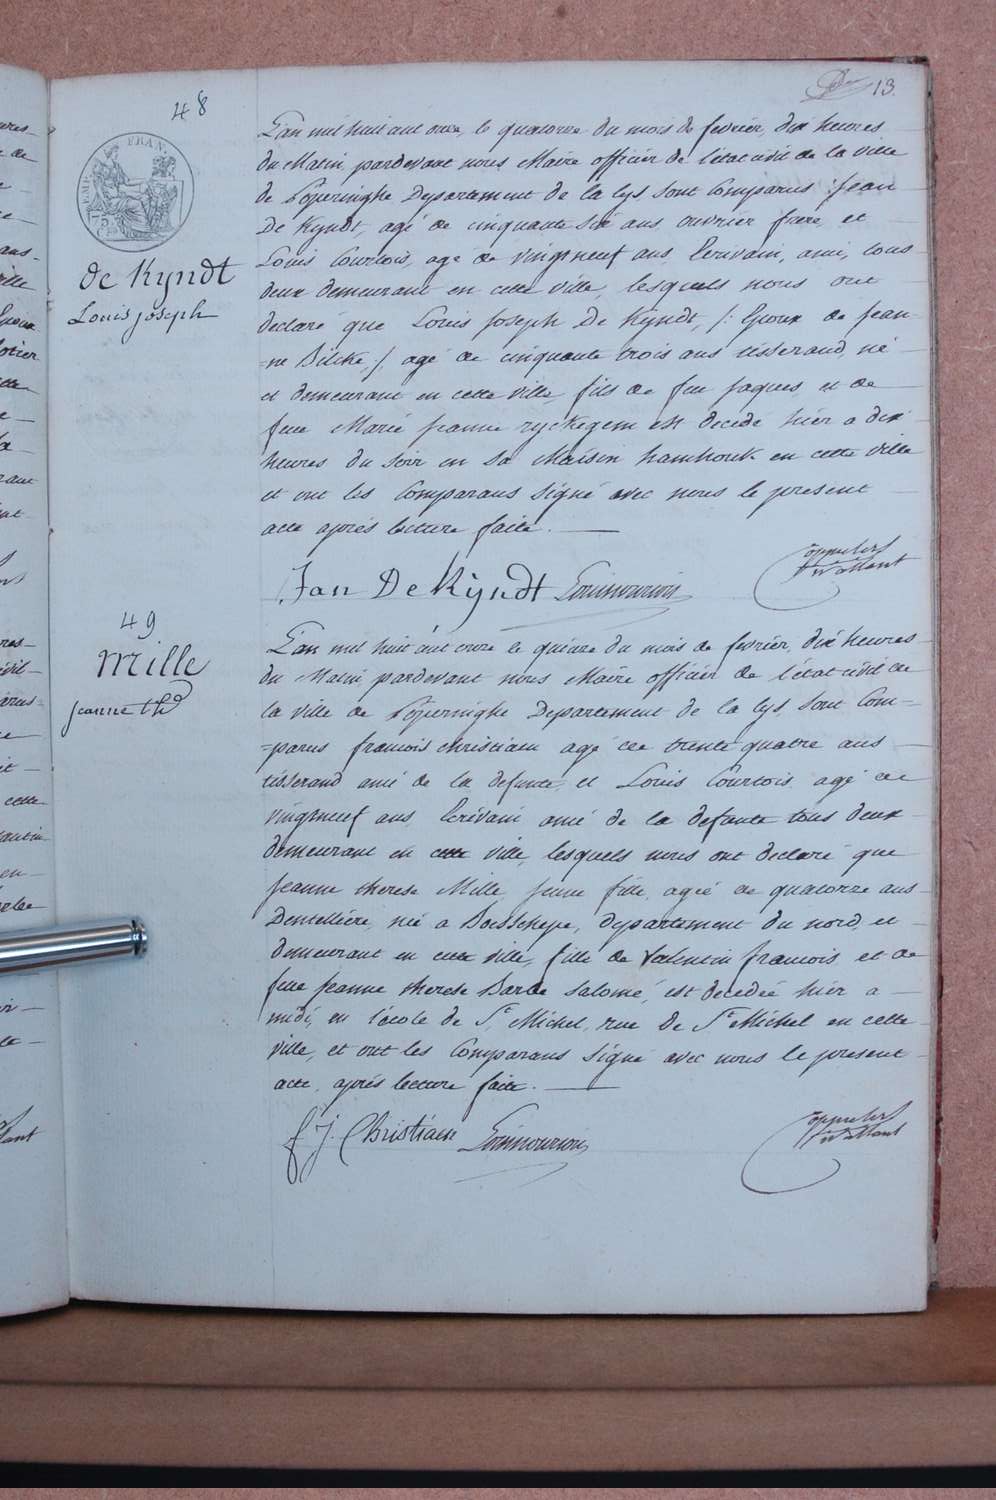 13.
48
EMP. FRAN.
de Kyndt
Louis joseph
L'an mil huit cent onze, le quatorze du mois de fevrier, dix heures
du Matin, pardevant nous Maire officier de l'état civil de la ville
de Poperinghe Departement de la lys, sont Comparus : Jean
De Kyndt, agé de cinquante six ans, ouvrier, frere, et
Louis Courtois, agé de vingtneuf ans, Ecrivain, ami, tous
deux demeurant en cette ville, lesquels nous ont
declaré que Louis Joseph De Kyndt, /: Epoux de Jean-
=ne Bilcke :/ agé de cinquante trois ans tisserand, né
et demeurant en cette ville, fils de feu jaques, et de
feue Marie jeanne ryckegem est decedé hier a dix
heures du soir en sa Maison hamhouck en cette ville
et ont les Comparans signé avec nous le present
acte aprés lecture faite.
Jan De Kyndt
49
Mille
jeanne thé
L'an mil huit cent onze le quinze du mois de fevrier, dix heures
du Matin, pardevant nous Maire officier de l'état civil de
la ville de Poperinghe Departement de la lys, sont Com=
=parus francois christiaen agé de trente quatre ans
tisserand ami de la defunte, et Louis Courtois agé de
vingtneuf ans, Ecrivain ami de la defunte tous deux
demeurant en cette ville, lesquels nous ont declaré que
jeanne therese Mille jeune fille, agée de quatorze ans
Dentelliére, né a Boesschepe, departement du nord, et
demeurant en cette ville, fille de Valentin francois et de
feue jeanne therese Barbe Salomé, est decedée hier a
midi, en l'école de St. Michel, rue de St. Michel en cette
ville, et ont les Comparans signé avec nous le present
acte, aprés lecture faite.
f J. Christiaen